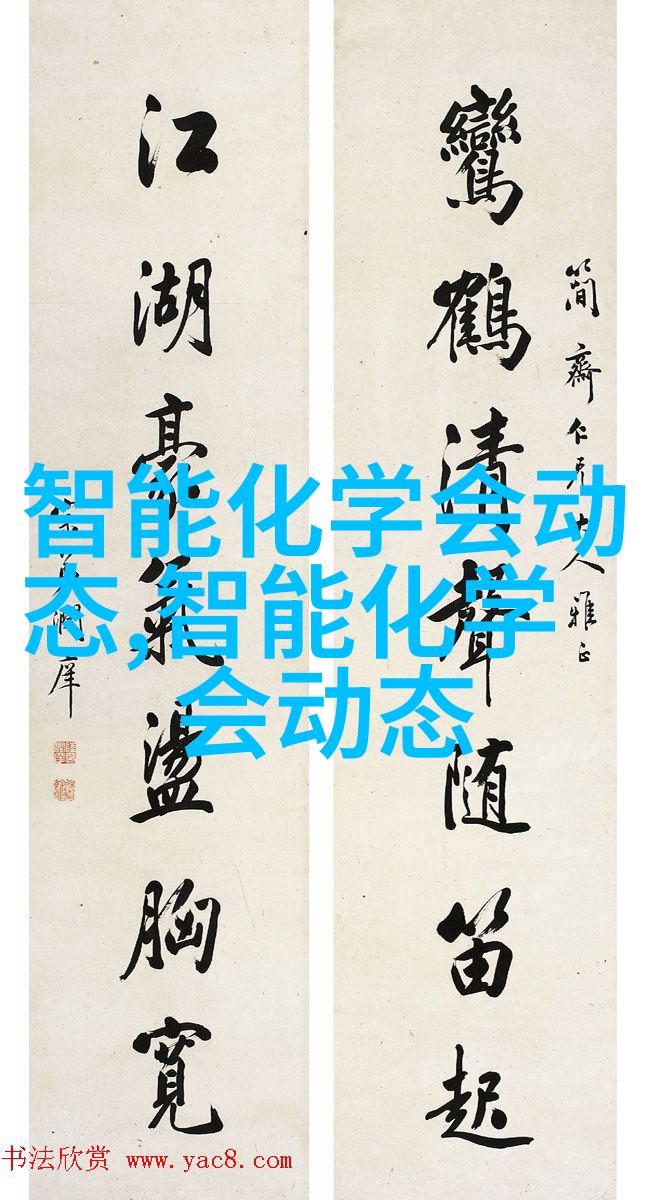 鸞鶴清聲随笛起
簡齋仁兄大人雅正
江湖豪氣盪胸寬
智能化学会动
态,智能化学
会动态
书法欣赏 www.yac8.com